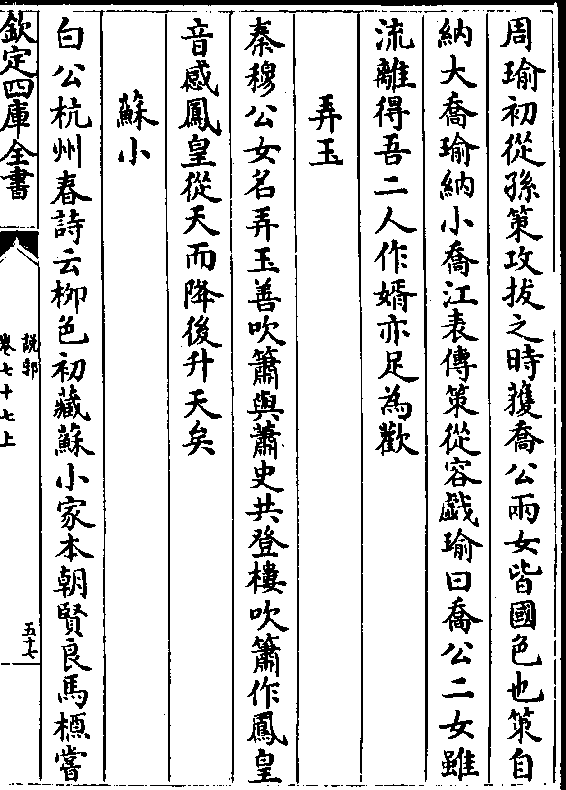 周瑜初從孫策攻拔之時獲喬公兩女皆國色也策自
納大喬瑜納小喬江表傳策從容戲瑜曰喬公二女雖
流離得吾二人作婿亦足為歡
弄玉
秦穆公女名弄玉善吹簫與蕭史共登樓吹簫作鳳皇
音感鳳皇從天而降後升天矣
蘇小
白公杭州春詩云柳色初藏蘇小家本朝賢良馬槱嘗
欽定四庫全書
說郛
卷七十七上
五十七